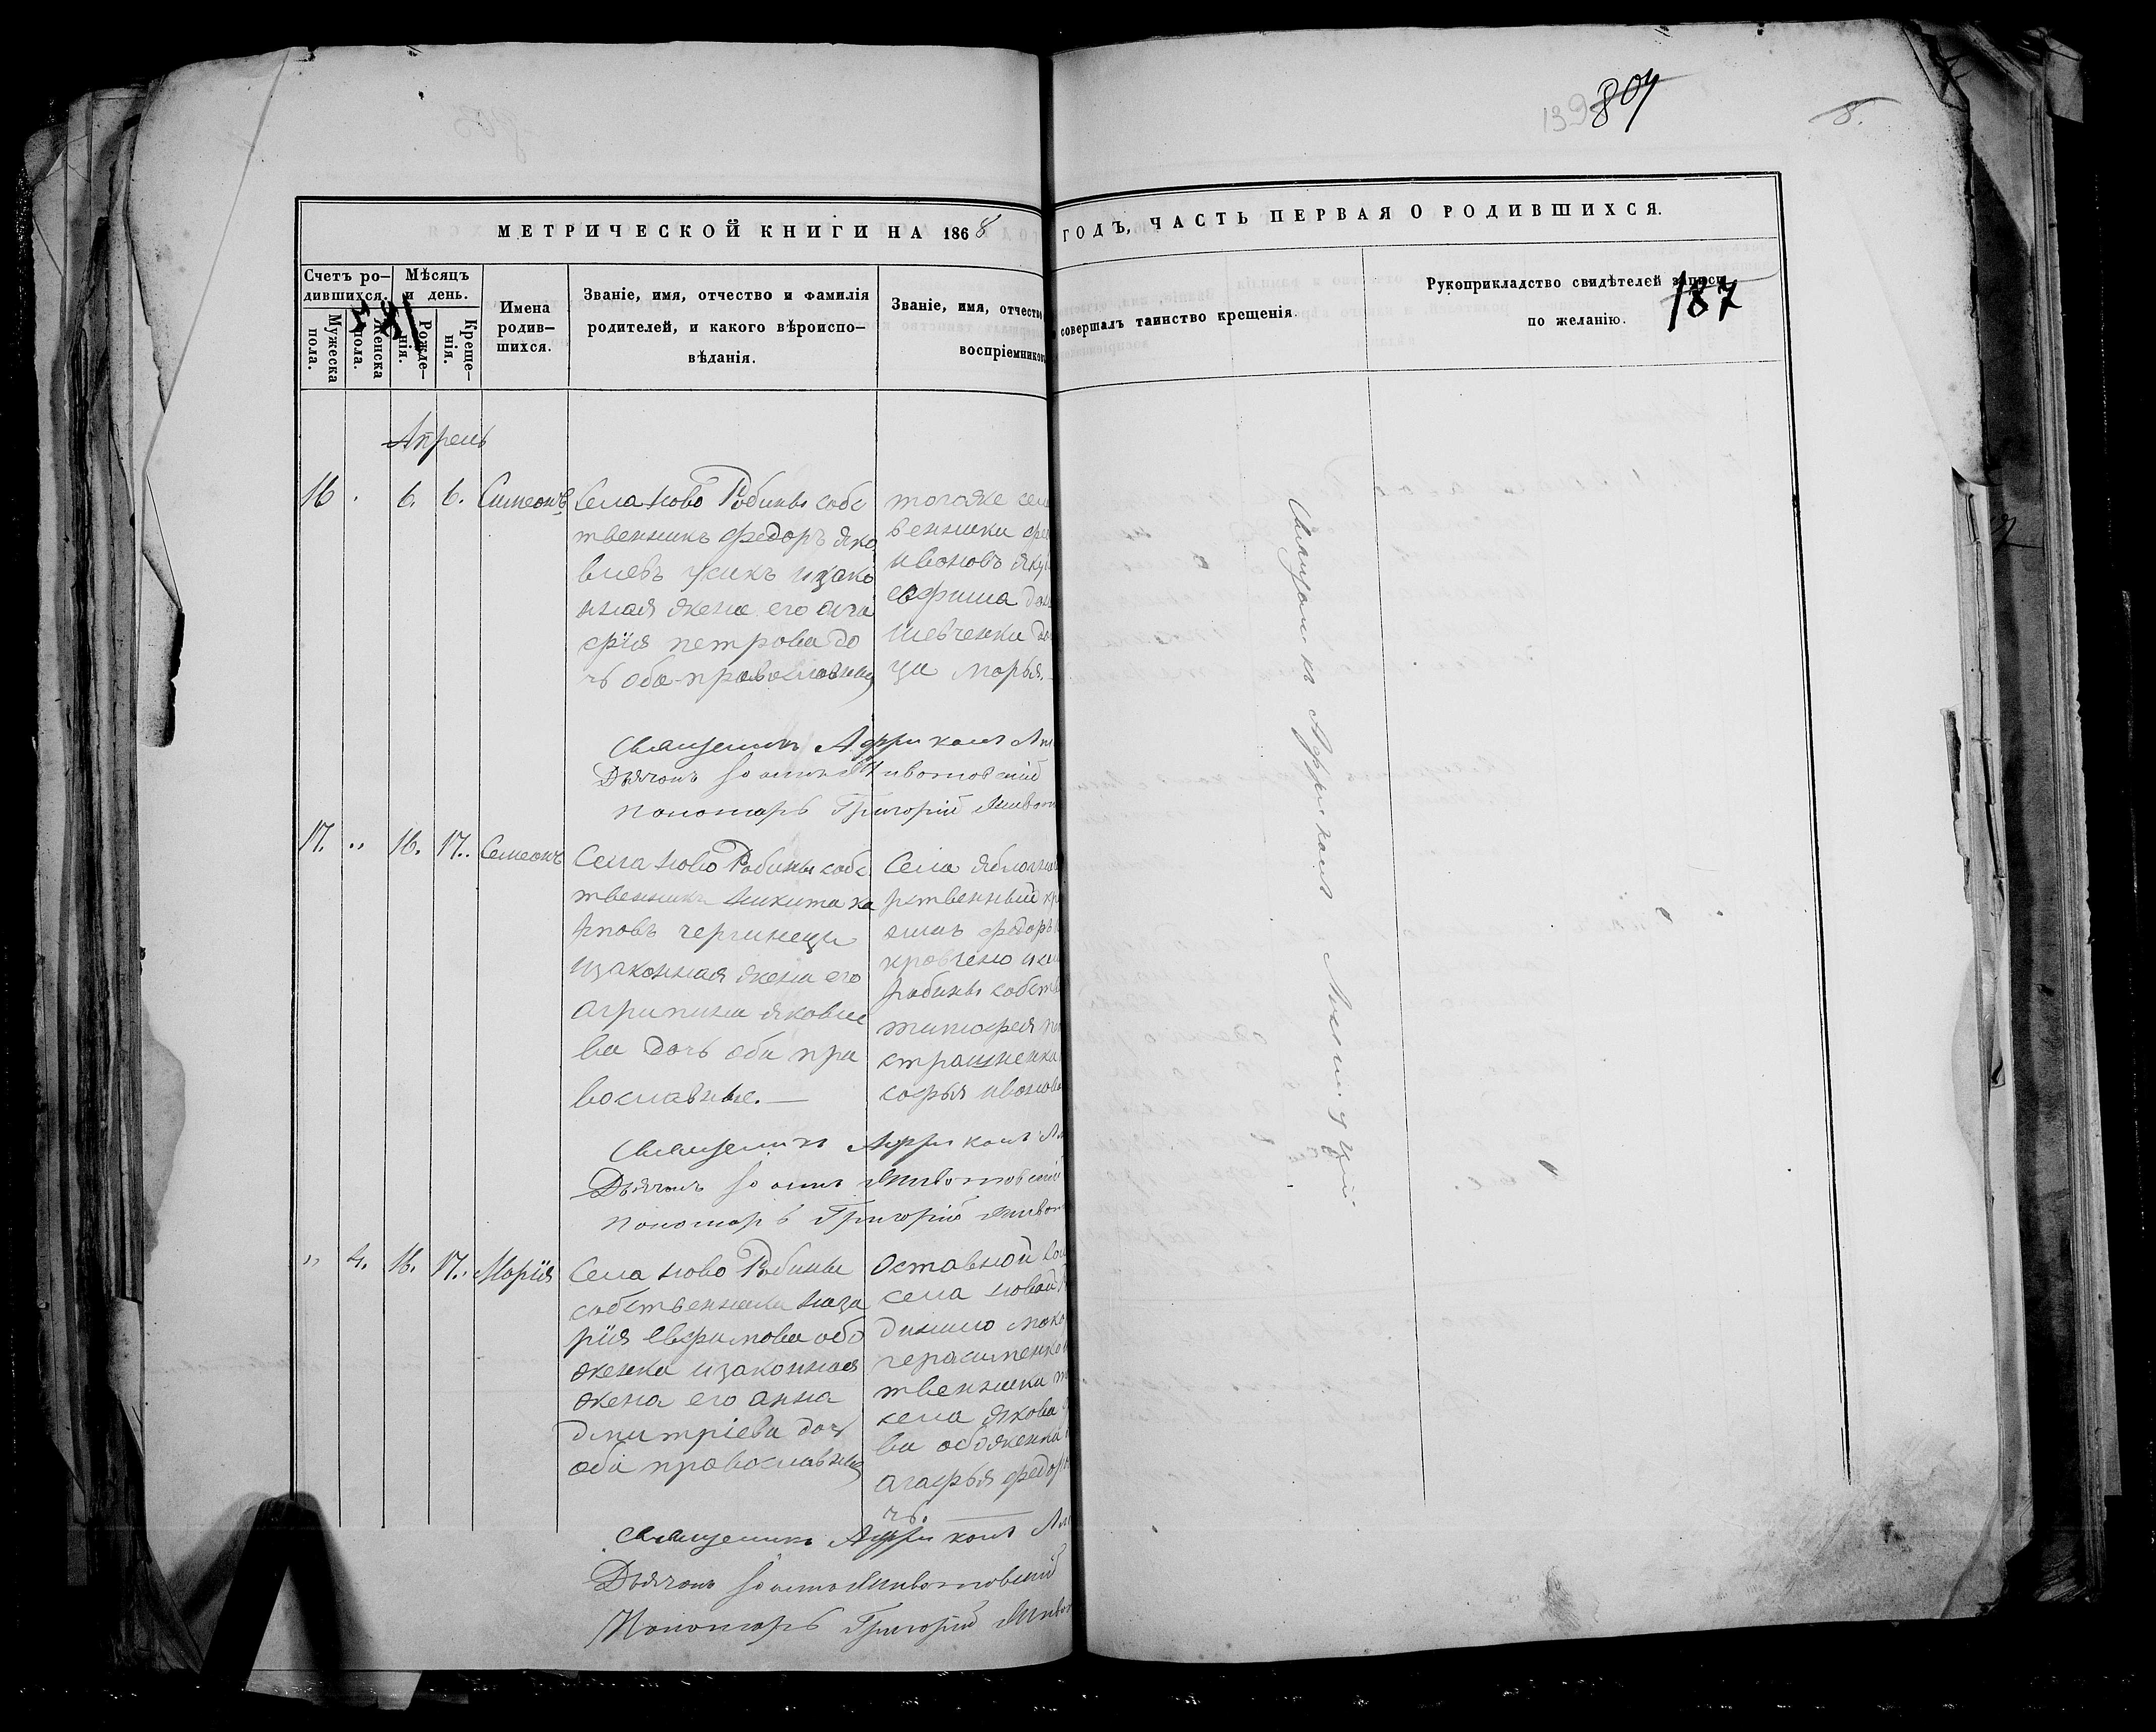 139 804
8.
МЕТРИЧЕСКОЙ КНИГИ НА 1868
ГОДЪ, ЧАСТЬ ПЕРВАЯ О РОДИВШИХСЯ.
Счетъ ро-
дившихся.
Мужеска
пола.
Женска
пола.
Мѣсяцъ
и день.
Рожде-
нія.
Креще-
нія.
Имена
родив-
шихся.
Званіе, имя, отчество и фамилія
родителей, и какого вѣроиспо-
вѣданія.
Званіе, имя, отчество
воспріемников
совершалъ таинство крещенія.
Рукоприкладство свидѣтелей записи
по желанію.
187
Апрель
16 . 6. 6. Симеонъ
Села Ново Рябины собс
твенникъ Федоръ Яко
влевъ и зако
нная жена его
фія петрова до
чь оба православныя
тогоже сел
венники
ивановъ
евфима
Шевченка
ца Марья.
Священникъ Африканъ
Дьячокъ Іоаннъ Животовскій
Пономарь Григорій Живот
17. „ 16. 17. Симеонъ
Села Ново Рябины собс
твенникъ Никита ка
рповъ
изаконная жена его
агрипина яковле
ва дочь оба пра
вославные.
Села Яблочн
рственный кр
янинъ федоръ
кравченко и сел
рябины собств
тимофея
страшненка
софья иванова
Священникъ Африканъ
Дьячокъ Іоаннъ Животовскій
Пономарь Григорій Живот
„ 4. 16. 17. Марія
Села Ново Рябины
собственника наза
рія евфимова обо
женка изаконная
жена его анна
дмитріева дочь
оба православныя
Оставной
села новой
герасименко
твенника
села якова
ва обоженка
агафья федор
чь.
Священникъ Африканъ
Дьячокъ Іоаннъ Животовскій
Пономарь Григорій Живот
Священникъ Африканъ